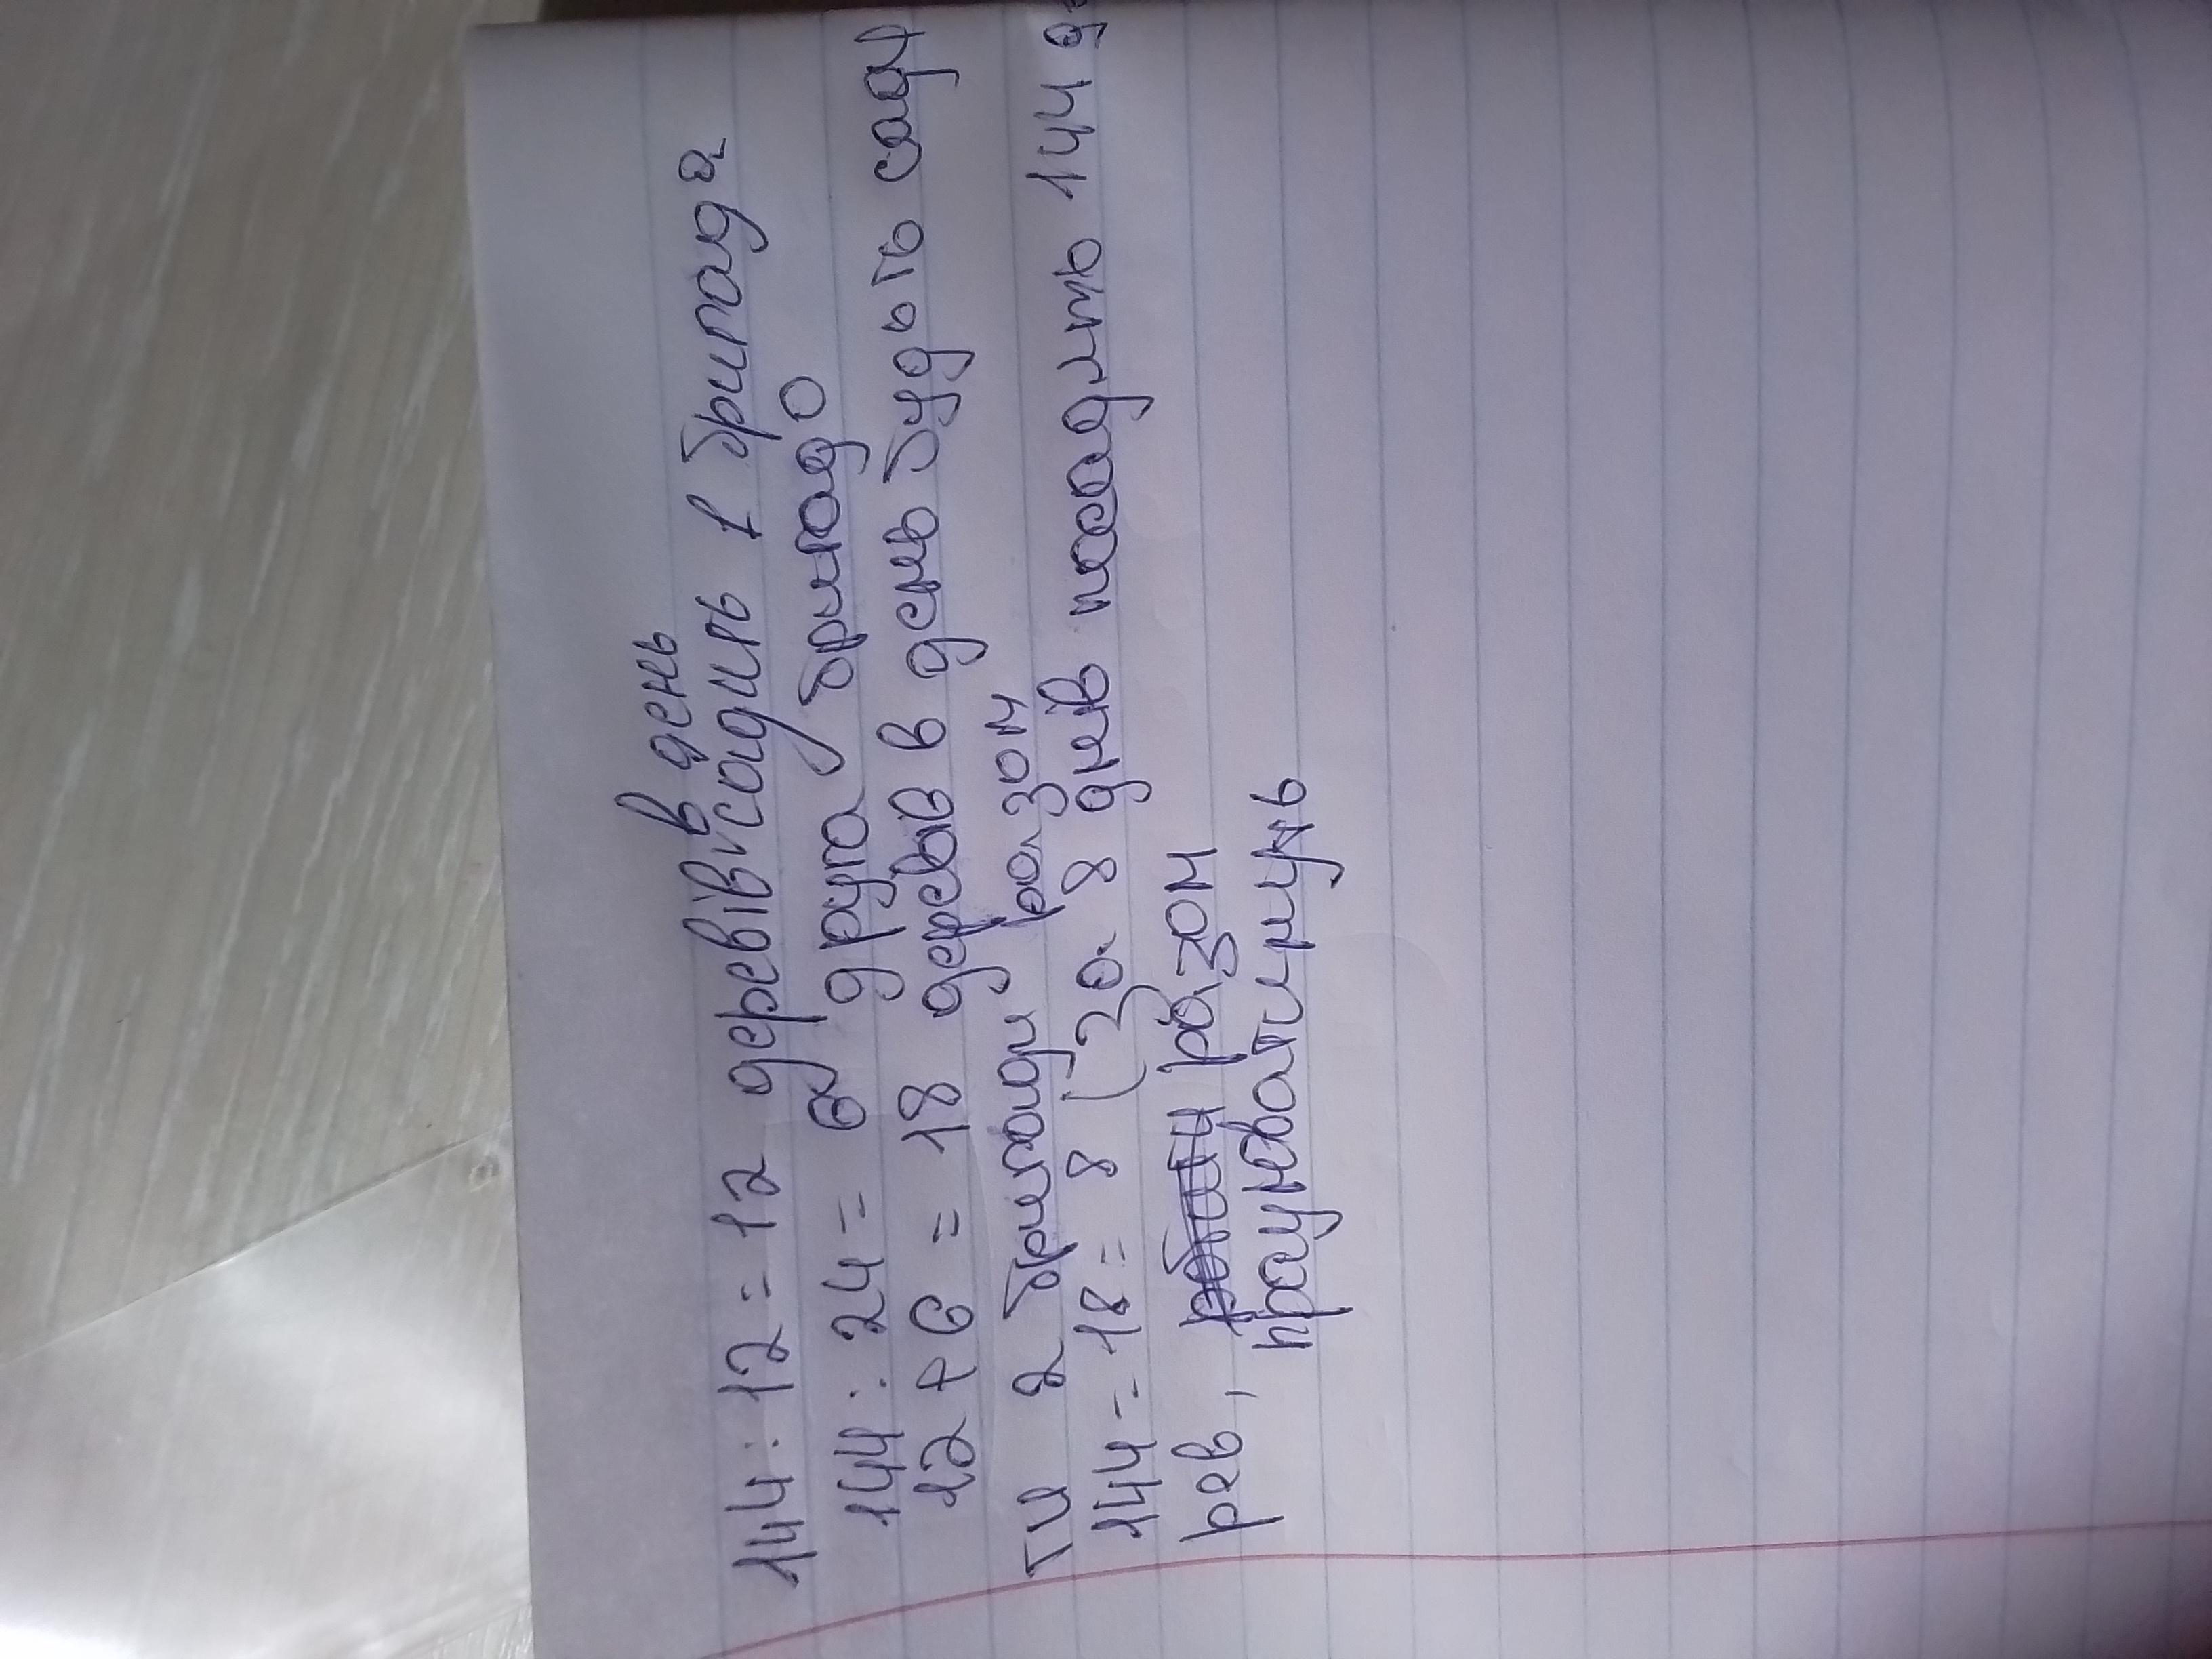 в день
144 : 12 = 12 деревів садить 1 бригада
144 : 24 = 6 друга бригада
12 + 6 = 18 дерев в день будьть сади
ти 2 бригади разом
144 - 18 = 8 (За 8 днів посадять 144 де
рев, разом
працюватимуть